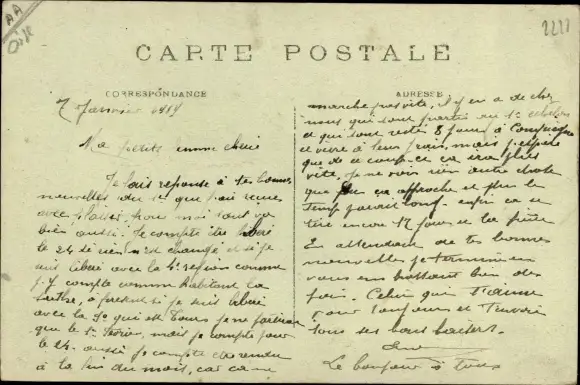 AA
Oise
2211
CARTE POSTALE
CORRESPONDANCE
ADRESSE
7 Janvier
Ma petite emme cherie
Je fais reponse à tes bonnes
nouvelles du 1e que j'ai reçues
avec plaisir, pour moi tout va
bien aussi. Je compte être liberé
le 24 si rien n'est changé et si je
suis liberé avec la 4e region comme
j'y compte comme habitant la
Sarthe, à present si je suis liberé
avec la 9e qui est Tours je ne partirai
que le 1er Fevrier, mais je compte pour
le 24 aussi je compte etre rendu
à la fin du mois, car ca ne
marche pas vite, il y en a de chez
nous qui sont partis au 1e echelon
et qui sont restés 8 jours à Compiegne
et vivre à leur frais, mais j'espère
que de ce coup-ce ca ira plus
vite, je ne vois rien autre chose
que ca approche et plus le
temps parait long. enfin ca se
tire encore 17 jours et la fuite
En attendant de tes bonnes
nouvelles je termine en
vous embrassant bien des
fois. Celui qui t'aime
pour toujours et t'envoie
tous ses bons baisers.
Le bonjour à tous